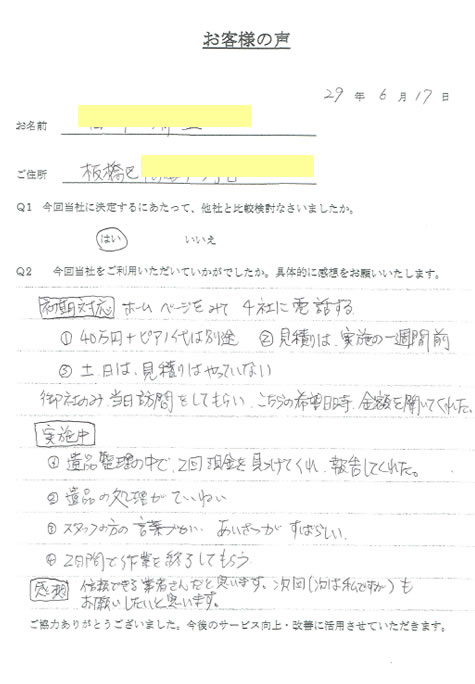 お客様の声
29 年 6 月 17 日
お名前
ご住所 板橋区
Q1 今回当社に決定するにあたって、他社と比較検討なさいましたか。
はい いいえ
Q2 今回当社をご利用いただいていかがでしたか。具体的に感想をお願いいたします。
初期対応 ホームページをみて 4社に電話する
① 40万円+ピアノ代は別途 ② 見積りは、実施の一週間前
③ 土日は、見積りはやっていない
御社のみ当日訪問をしてもらい、こちらの希望日時、金額を聞いてくれた。
実施中
① 遺品整理の中で、2回現金を見つけてくれ、報告してくれた。
② 遺品の処理がていねい
スタッフの方の言葉づかい、あいさつがすばらしい
④ 2日間で作業を終了してもらう
感想 信頼できる業者さんだと思います。次回(次は私ですか)も
お願いしたいと思います。
ご協力ありがとうございました。今後のサービス向上・改善に活用させていただきます。